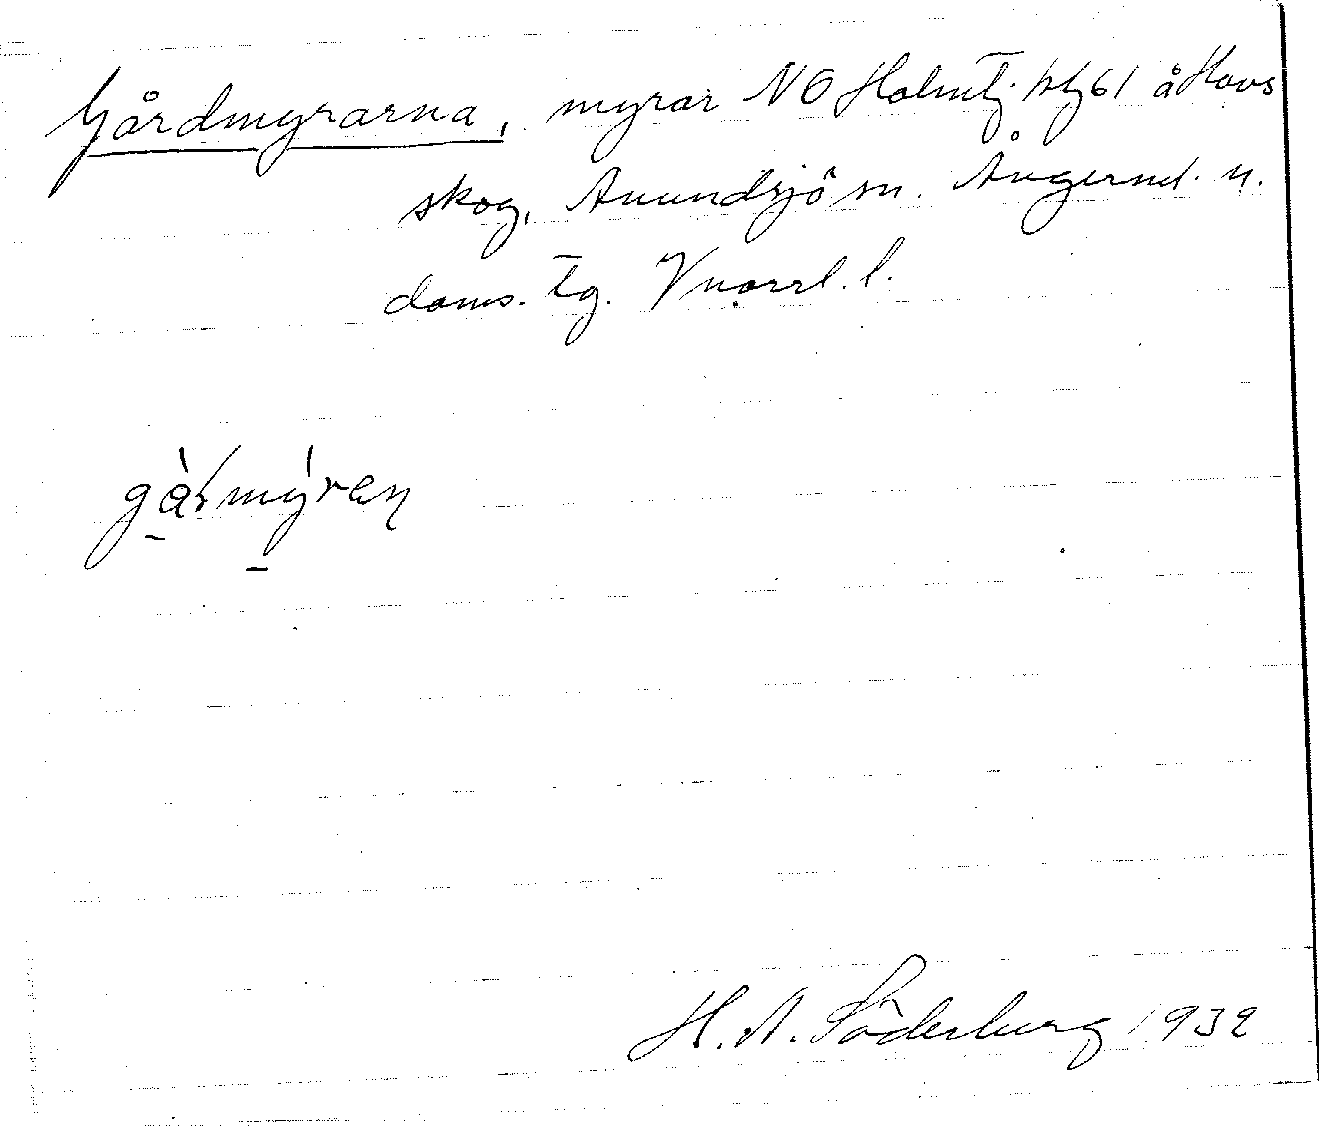 Gårdmyrarna, myrar NO Holmtj. htg 61 å Havs
skog, Anundsjö sn. Ångerml. n.
doms. tg. Vnorrl. l.
gàrmýren
H. A. Söderberg 1932